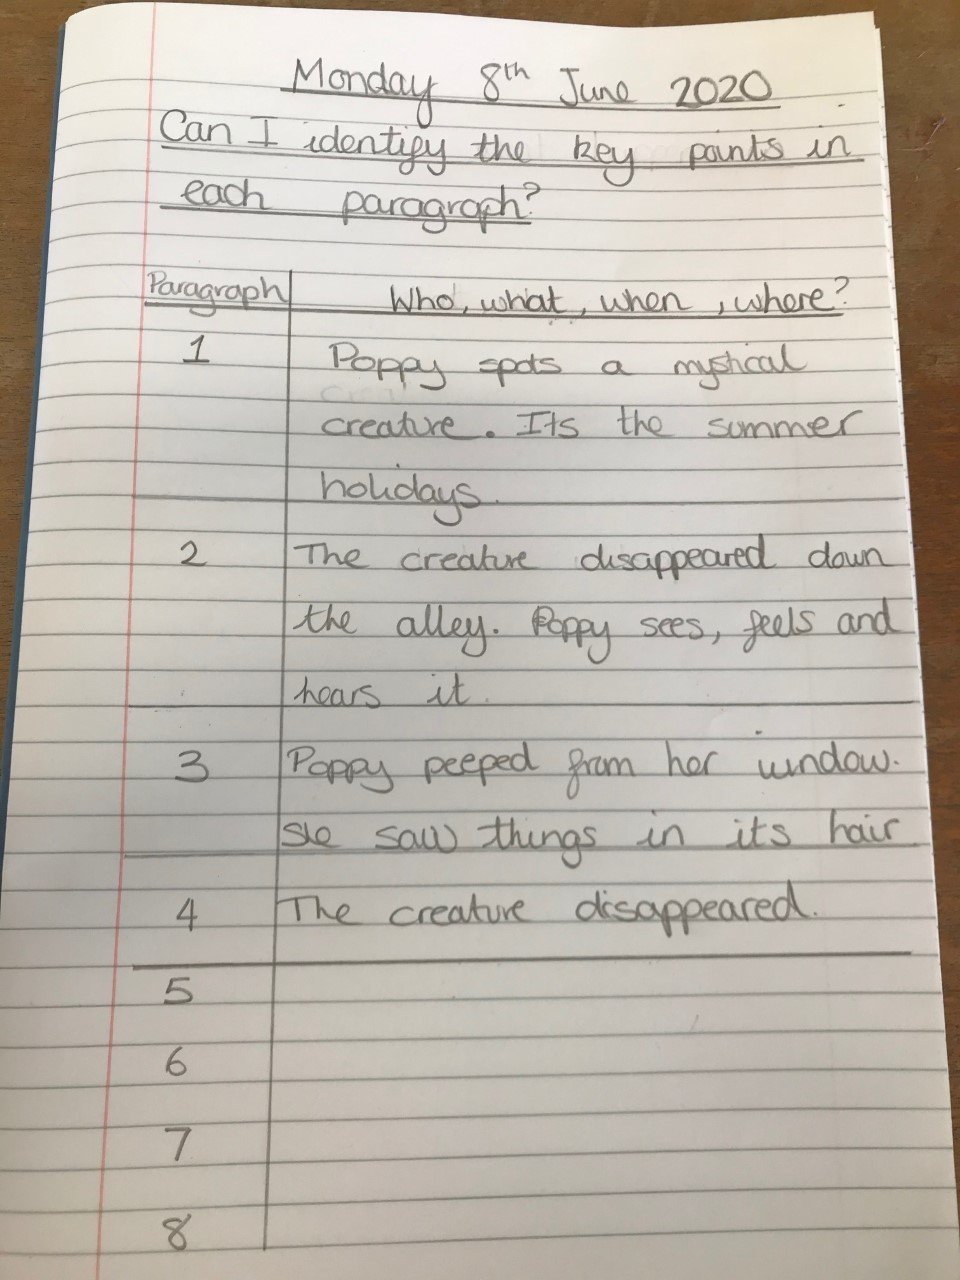 Monday 8th June 2020
Can I identify the key points in
each paragraph?
Paragraph Who, what, when, where?
1 Poppy spots a mystical
creature. Its the summer
holidays.
2 The creature disappeared down
the alley. Poppy sees, feels and
hears it.
3 Poppy peeped from her window.
She saw things in its hair
4 The creature disappeared.
5
6
7
8